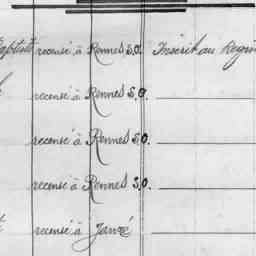 recensé à Rennes S.O. Inscrit au
recensé à Rennes S.O.
recensé à Rennes S.O.
recensé à Rennes S.O.
recensé à Janzé